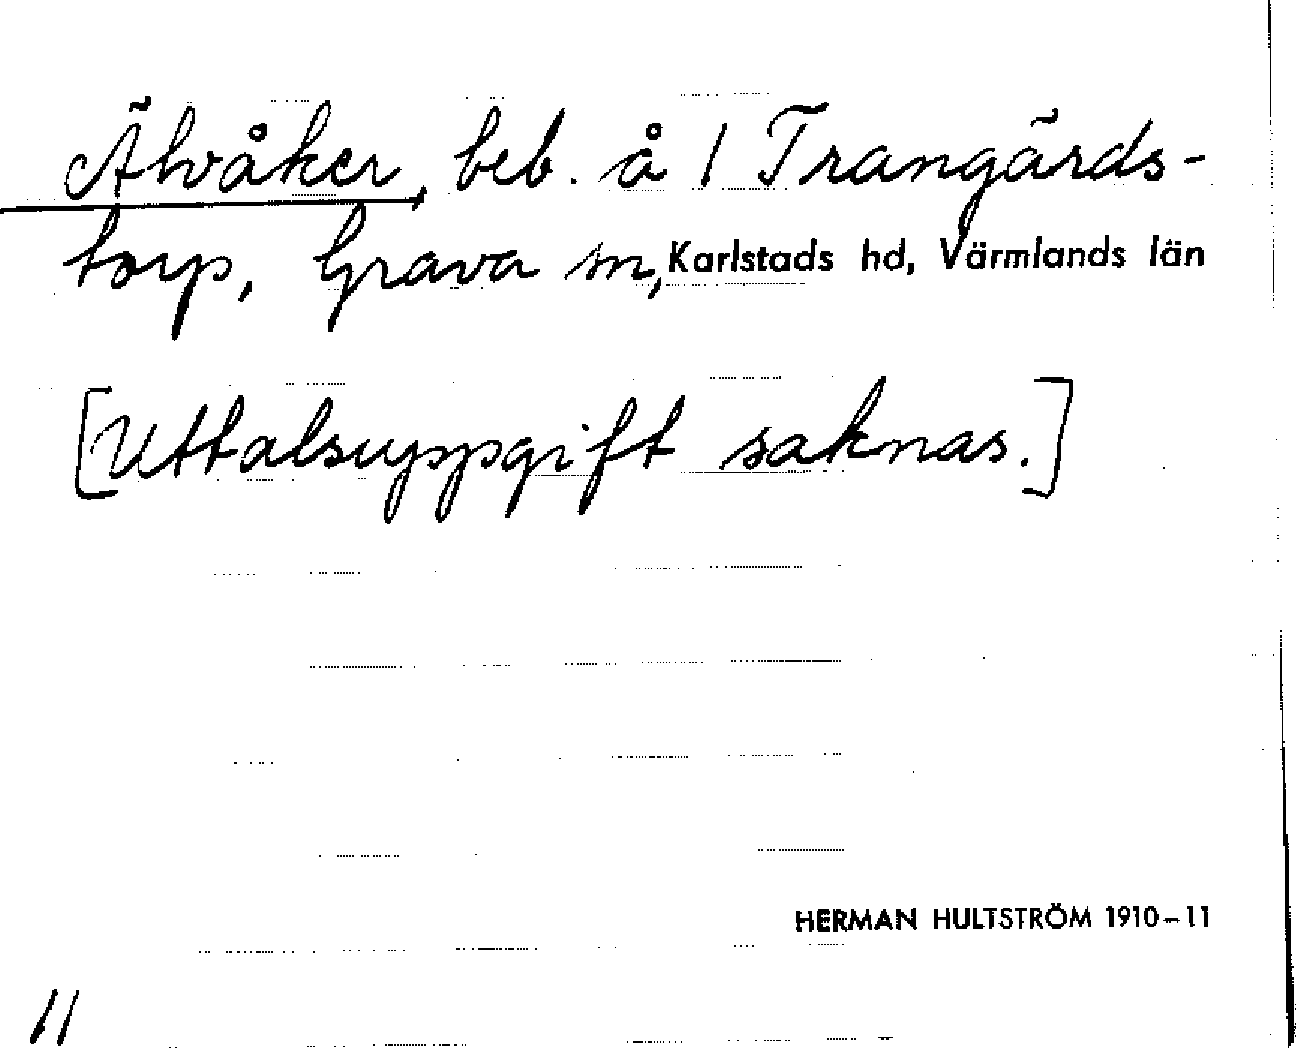 Älvåker, beb. å 1 Trangärds-
torp, Grava sn, Karlstads hd, Värmlands län
[Uttalsuppgift saknas.]
HERMAN HULTSTRÖM 1910-11
11